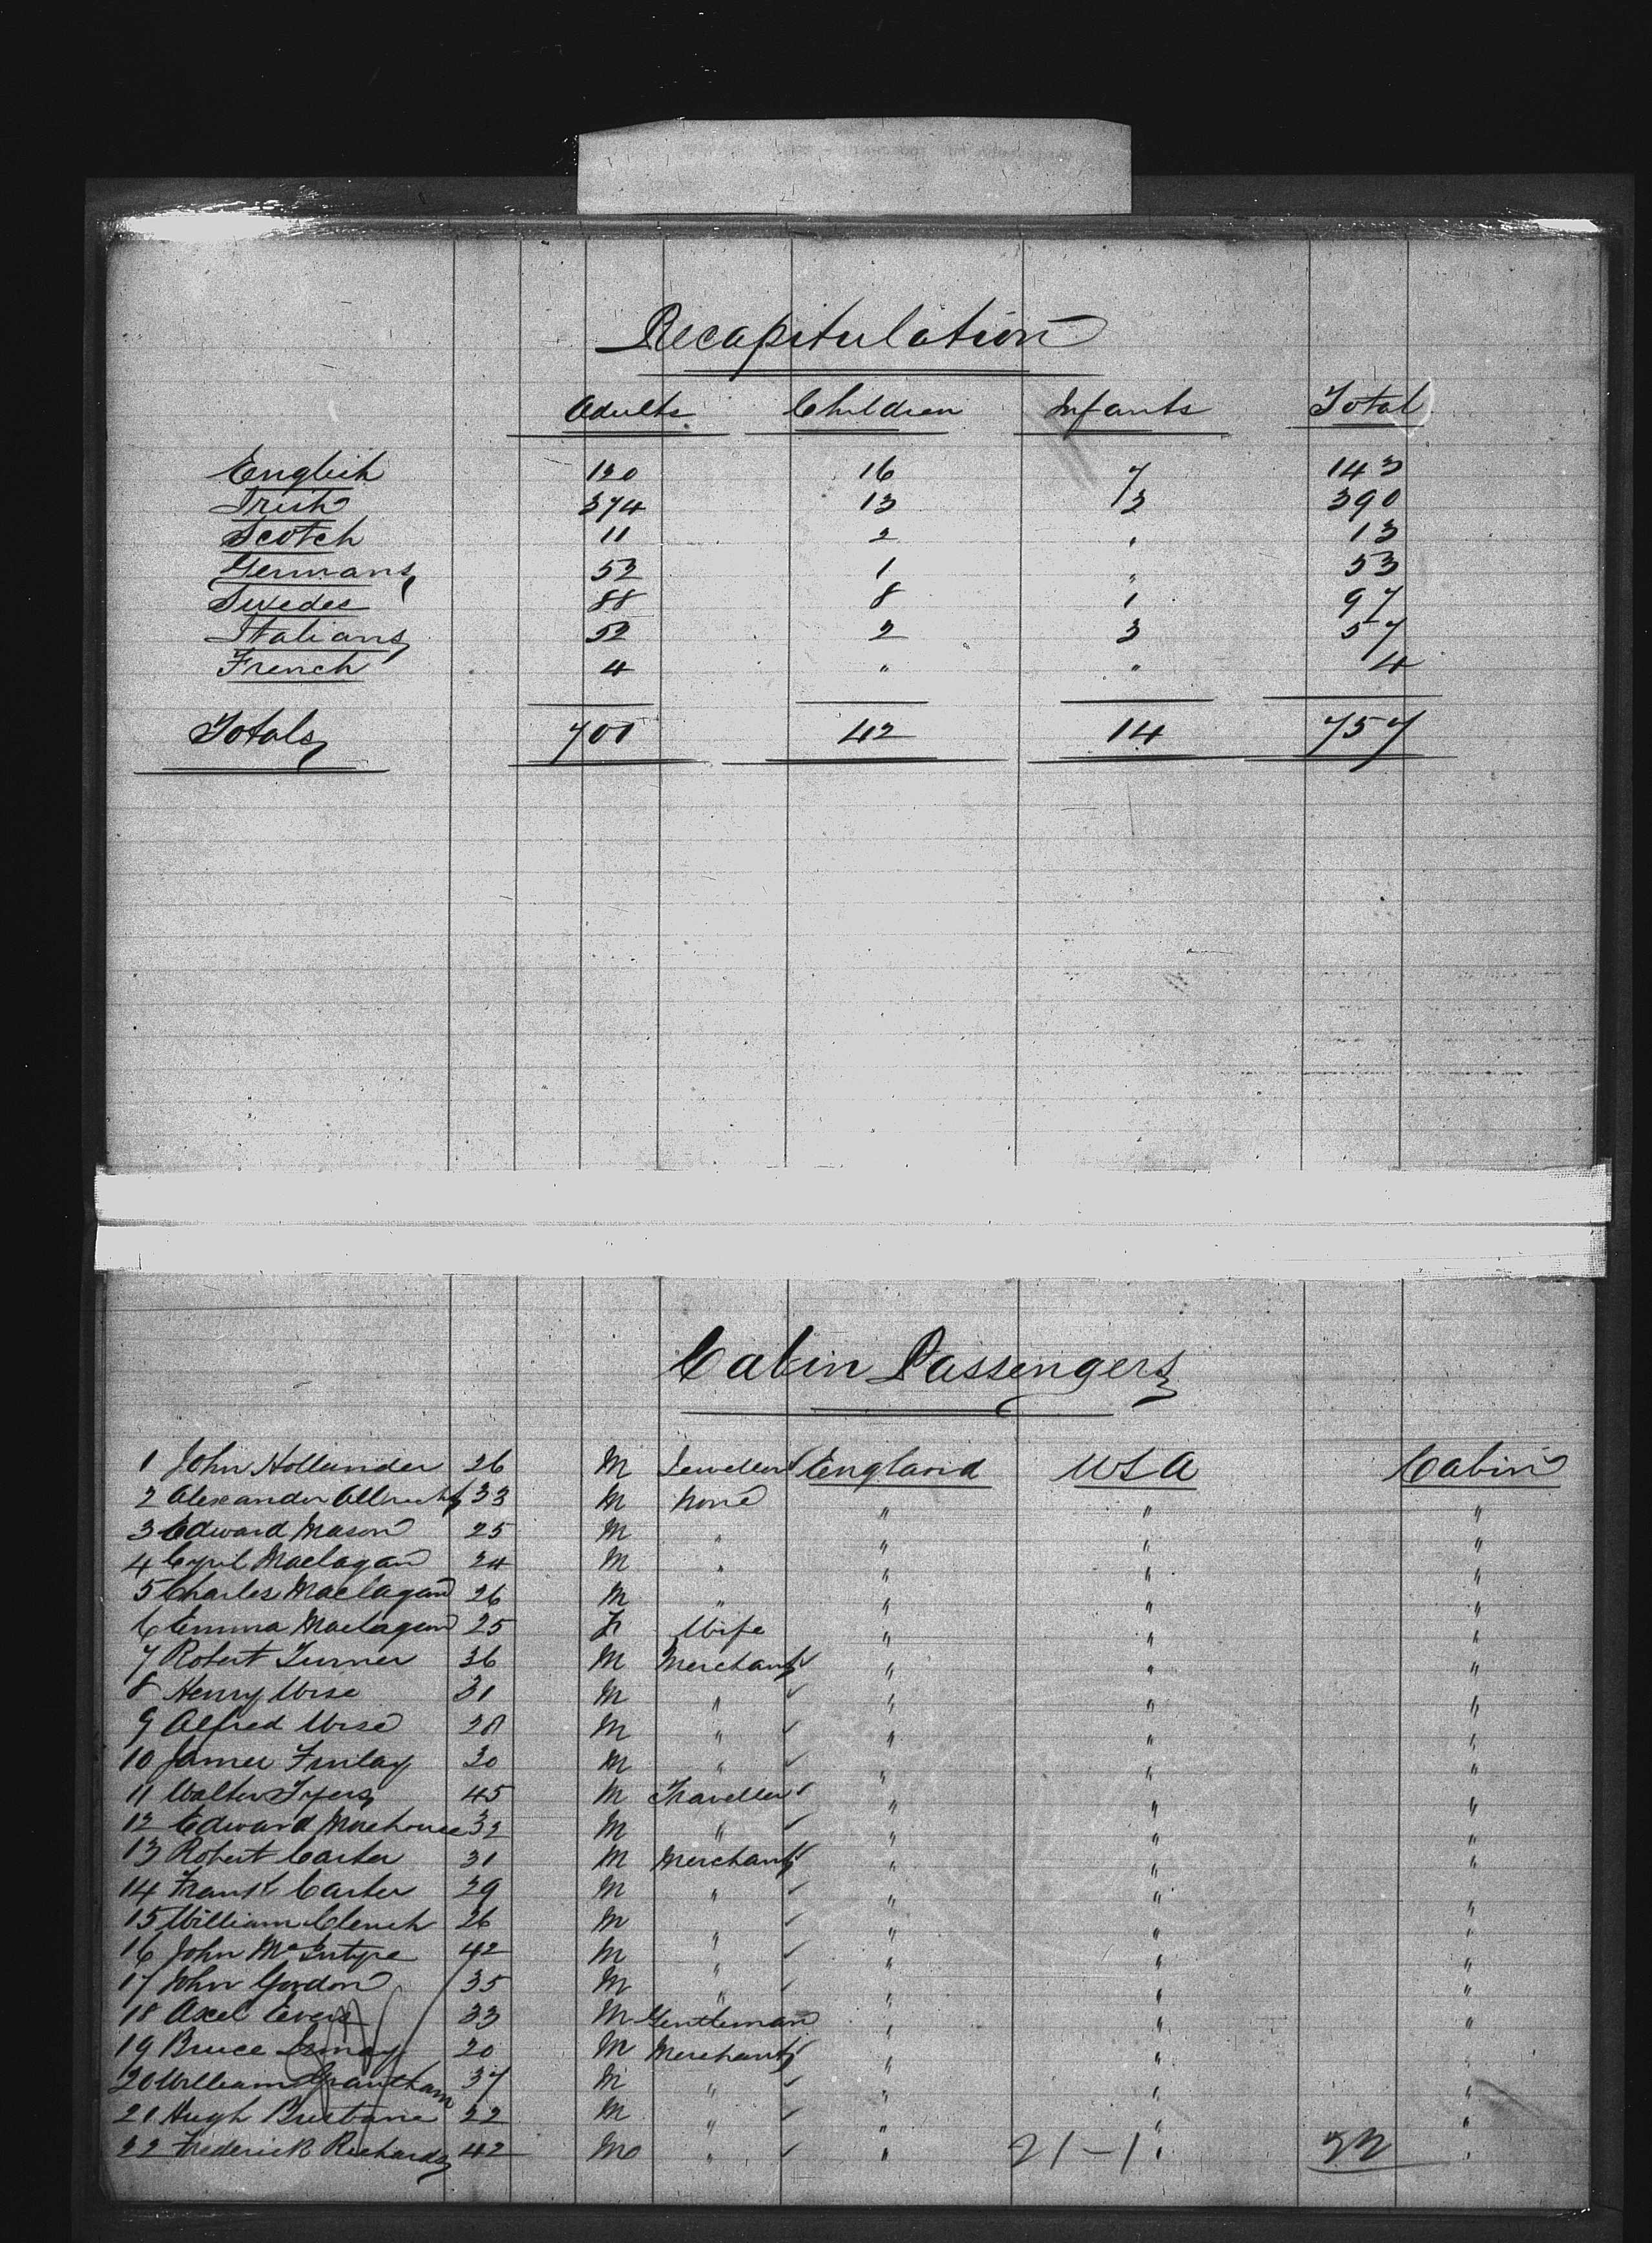 Recapitulation
Adults Children Infants Total
English 120 16 7 143
Irish 374 13 3 390
Scotch 11 2 " 13
Germans 52 1 " 53
Swedes 88 8 1 97
Italians 52 2 3 57
French 4 " " 4
Totals 701 42 14 757
Cabin Passengers
1 John Hollander 26 M Jeweller England USA Cabin
2 Alexander 33 M None " " "
3 Edward Mason 25 M " " " "
4 Cyril Maclagan 24 M " " " "
5 Charles Maclagan 26 M " " " "
6 Emma Maclagan 25 F Wife " " "
7 Robert Turner 36 M Merchant " " "
8 Henry Wise 31 M " " " "
9 Alfred Wise M " " " "
10 James Finlay 30 M " " " "
11 Walter Tyers 45 M Traveller " " "
12 Edward Morehouse 32 M " " " "
13 Robert Carter 31 M Merchant " " "
14 Frank Carter 29 M " " " "
15 William Clench 26 M " " " "
16 John McIntyre 42 M " " " "
17 John Gordon 35 M " " " "
18 Axel Evers 33 M Gentleman " " "
19 Bruce Ismay 20 M Merchant " " "
20 William Grantham 37 M " " " "
21 Hugh Brisbane 22 M " " " "
22 Frederick Richards 42 M " " 21-1 " 22 "